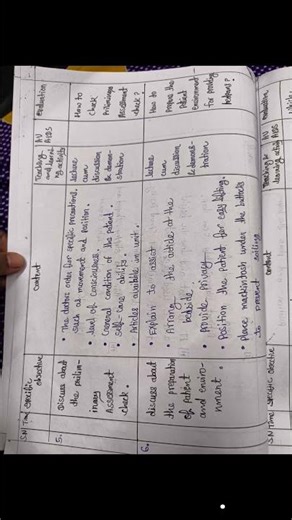 S.N Time Specific objective
Content
Teaching and learning activity
AV AIDS
Evaluation
5.
Discuss about
the prelim-
inary
Assessment
check.
• The doctor order for specific precautions,
such as movement and position.
• level of consciousness.
• General condition of the patient.
• self-care ability.
• Articles available in unit.
lecture
cum
discussion
& demon-
stration
How to
check
Preliminary
Assessment
check?
6.
discuss about
the preparation
of patient
and enviro-
nment.
• Explain to assist
• Arrang the article at the
bedside.
• provide privacy
• Position the patient for easy lifting.
• place mackintosh under the buttocks
to prevent soiling
lecture
cum
discussion
& demonst-
tration
How to
prepare the
patient
environment
for providing
bedpan?
S.N Time Specific objective
content
Teaching &
learning activity
AV
AIDS
Evaluation